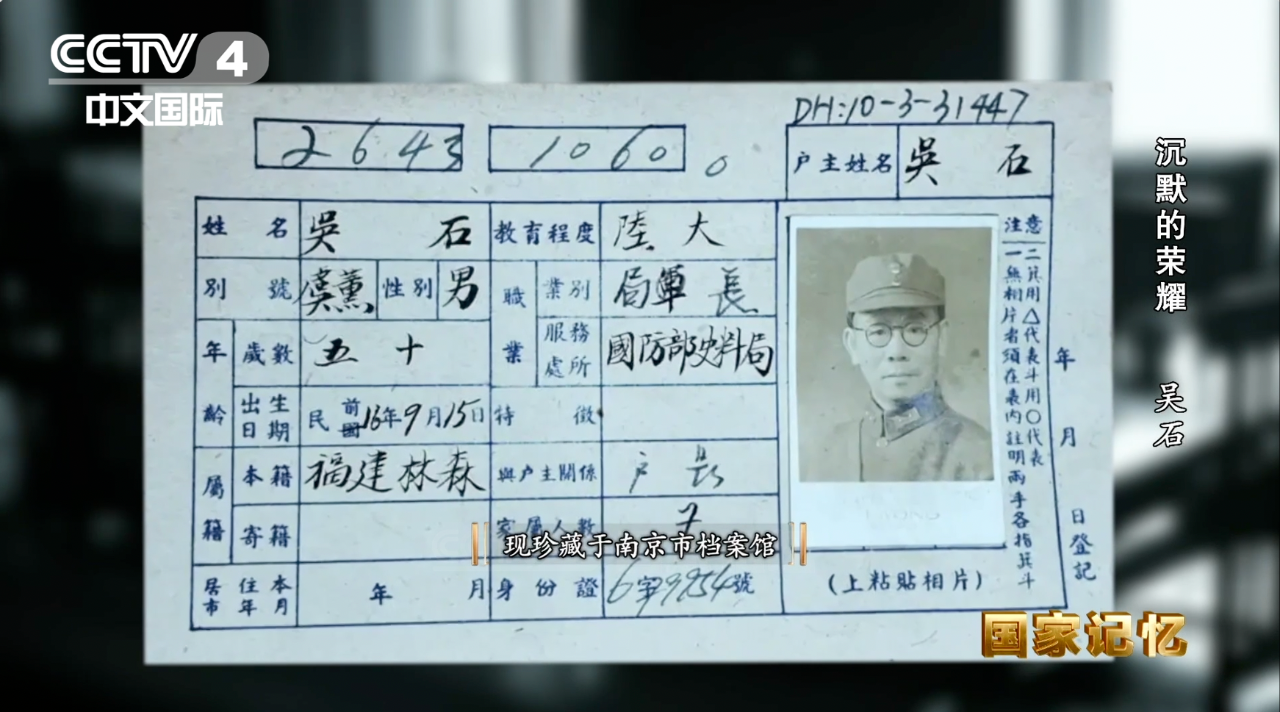 CCTV 4
中文国际
DH:10-3-31447
2643
1060
户主姓名 吳 石
姓名 吳 石 教育程度 陸大
別號 虞薰 性別 男 職業 業別 局單長
服務處所 國防部史料局
年齡 歲數 五十
出生日期 民前國16年9月15日 特徵
屬籍 本籍 福建林森 與户主關係 户長
寄籍 家屬人數
居住本市年月 年 月 身份證 6字9254號
注意
一無相片者須在表內註明兩手各指箕斗
二箕用△代表斗用〇代表
(上粘貼相片)
年 月 日登記
现珍藏于南京市档案馆
沉默的荣耀 吴石
国家记忆